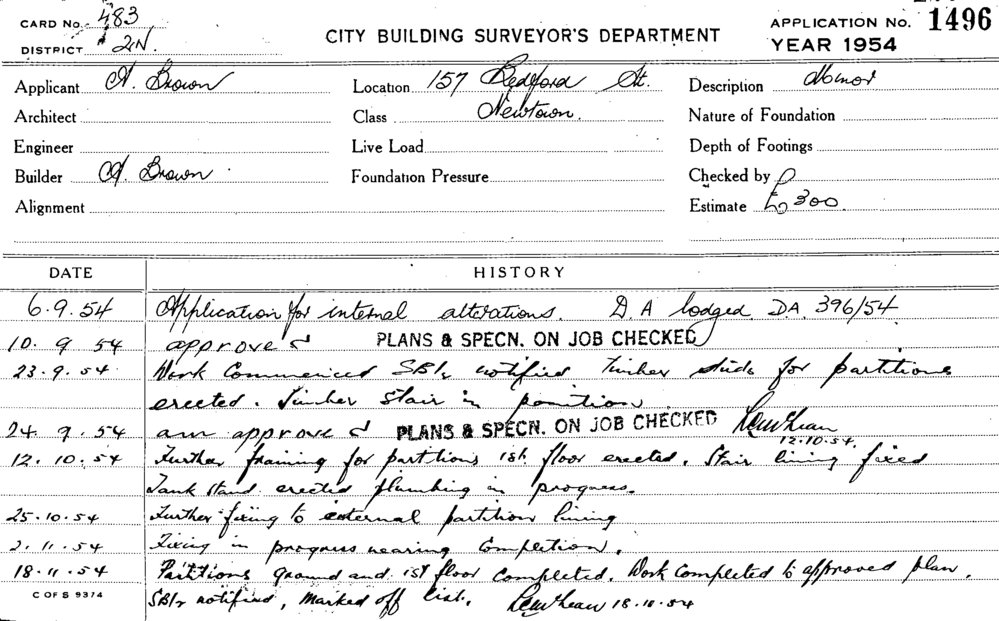 CARD No. 483
DISTRICT 2N.
CITY BUILDING SURVEYOR'S DEPARTMENT
APPLICATION No. 1496
YEAR 1954
Applicant A. Brown Location 157 Bedford St. Description Minor
Architect Class Newtown. Nature of Foundation
Engineer Live Load Depth of Footings
Builder A. Brown Foundation Pressure Checked by
Alignment Estimate £300.
DATE HISTORY
6.9.54 Application for internal alterations. D.A lodged DA 396/54
10.9.54 approved PLANS & SPECN. ON JOB CHECKED
23.9.54. Work Commenced SBI notified timber studs for partitions
erected. Timber Stair in position
24.9.54 am approved PLANS & SPECN. ON JOB CHECKED
12.10.54.
12.10.54 Further framing for partitions 1st. floor erected. Stair lining fixed
Tank stand erected plumbing in progress.
25.10.54 Further fixing to external partition lining
2.11.54 Fixing in progress nearing Completion.
18.11.54 Partitions ground and 1st floor completed. Work Completed to approved plan.
C OF S 9374
SBI notified, Marked off list. 18.10.54